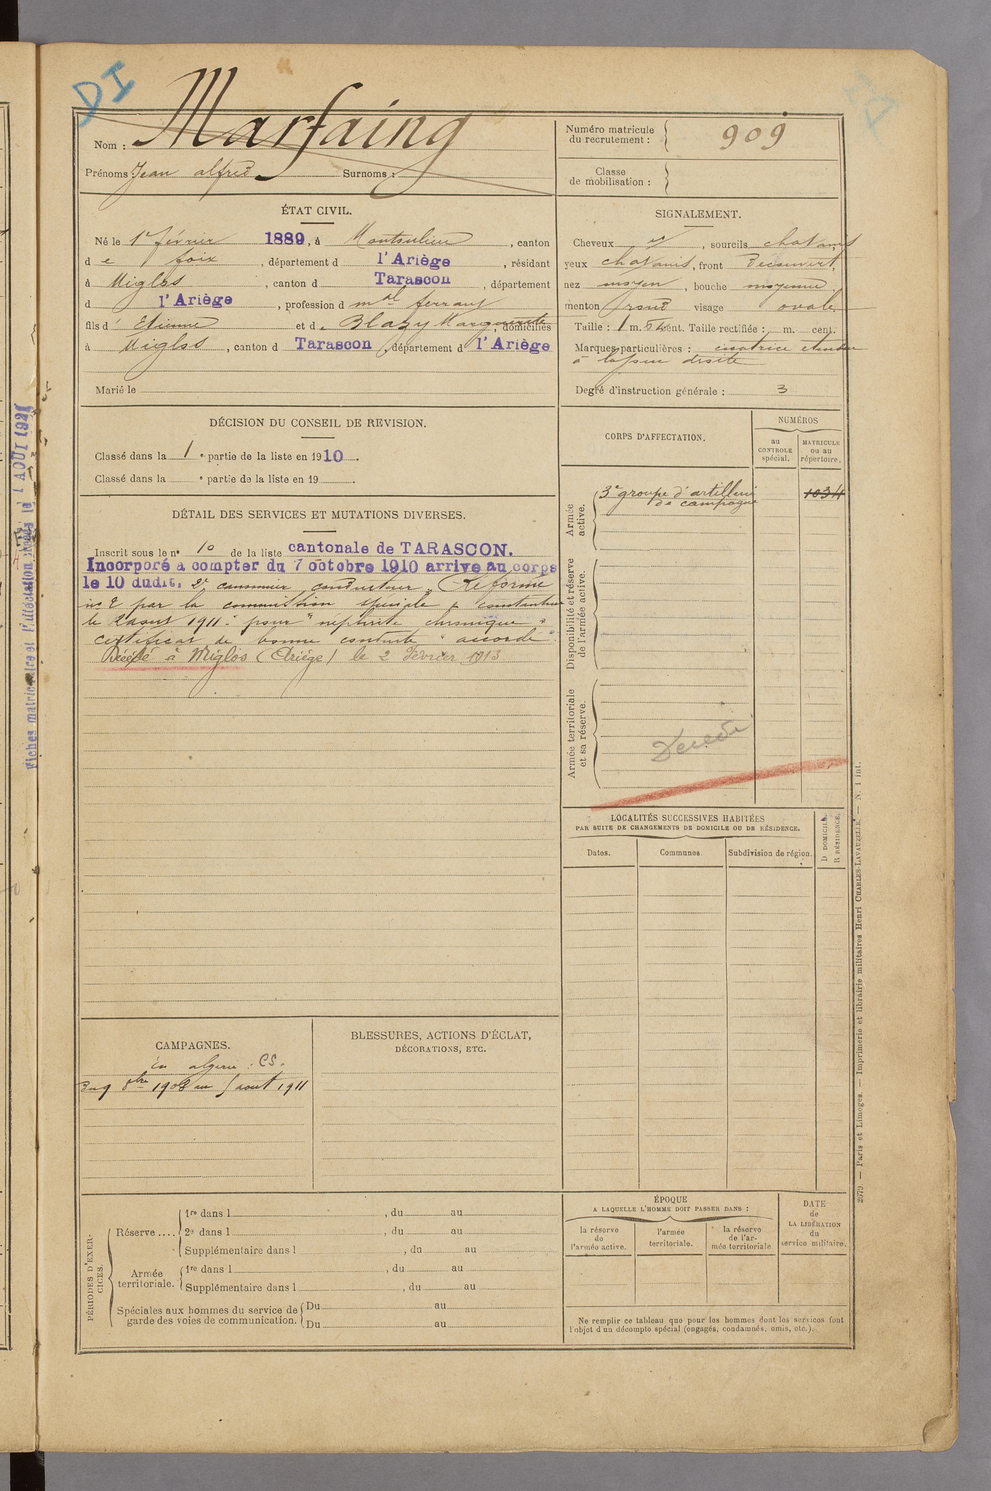 DI
Nom : Marfaing
Prénoms Jean alfred Surnoms :
Numéro matricule du recrutement : 909
Classe de mobilisation :
ÉTAT CIVIL.
Né le 1er février 1889, à Montoulieu, canton
de foix, département d l'Ariège, résidant
à Miglos, canton d Tarascon, département
d l'Ariège, profession d mal ferrant
fils d' Etienne et d. Blazy Marguerite, domiciliés
à Miglos, canton d Tarascon, département d l'Ariège
Marié le
SIGNALEMENT.
Cheveux, sourcils chatains
yeux chatains, front Découvert,
nez moyen, bouche moyenne
menton rond visage ovale
Taille : 1 m. cent. Taille rectifiée : m. cent.
Marques particulières : cicatrice
à droite
Degré d'instruction générale : 3
DÉCISION DU CONSEIL DE REVISION.
Classé dans la 1e partie de la liste en 1910.
Classé dans la e partie de la liste en 19 .
DÉTAIL DES SERVICES ET MUTATIONS DIVERSES.
Inscrit sous le n° 10 de la liste cantonale de TARASCON.
Incorporé à compter du 7 octobre 1910 arrivé au corps
le 10 dudit. 2e canonnier conducteur, Réformé
n° 2 par la commission spéciale de Constantine
le 2 aout 1911. pour "néphrite chronique".
certificat de bonne conduite "accordé".
à Miglos (Ariège) le 2 Février 1913
CORPS D'AFFECTATION.
NUMÉROS
au CONTROLE spécial.
MATRICULE ou au répertoire.
Armée active.
3e groupe d'artillerie 1034
de campagne
Disponibilité et réserve de l'armée active.
Armée territoriale et sa réserve.
LOCALITÉS SUCCESSIVES HABITÉES
PAR SUITE DE CHANGEMENTS DE DOMICILE OU DE RÉSIDENCE.
Dates.
Communes.
Subdivision de région.
D. DOMICILE.
R. RÉSIDENCE.
CAMPAGNES.
En algerie : CS.
aout 1911
BLESSURES, ACTIONS D'ÉCLAT,
DÉCORATIONS, ETC.
PÉRIODES D'EXERCICES.
Réserve....
1re dans l , du au
2e dans l , du au
Supplémentaire dans l , du au
Armée territoriale.
1re dans l , du au
Supplémentaire dans l , du au
Spéciales aux hommes du service de garde des voies de communication.
Du au
Du au
ÉPOQUE
A LAQUELLE L'HOMME DOIT PASSER DANS :
la réserve de l'armée active.
l'armée territoriale.
la réserve de l'armée territoriale
DATE de LA LIBÉRATION du service militaire.
Ne remplir ce tableau que pour les hommes dont les services font
l'objet d'un décompte spécial (engagés, condamnés, omis, etc.).
2679. — Paris et Limoges. — Imprimerie et librairie militaires Henri CHARLES-LAVAUZELLE. — N. 1 int.